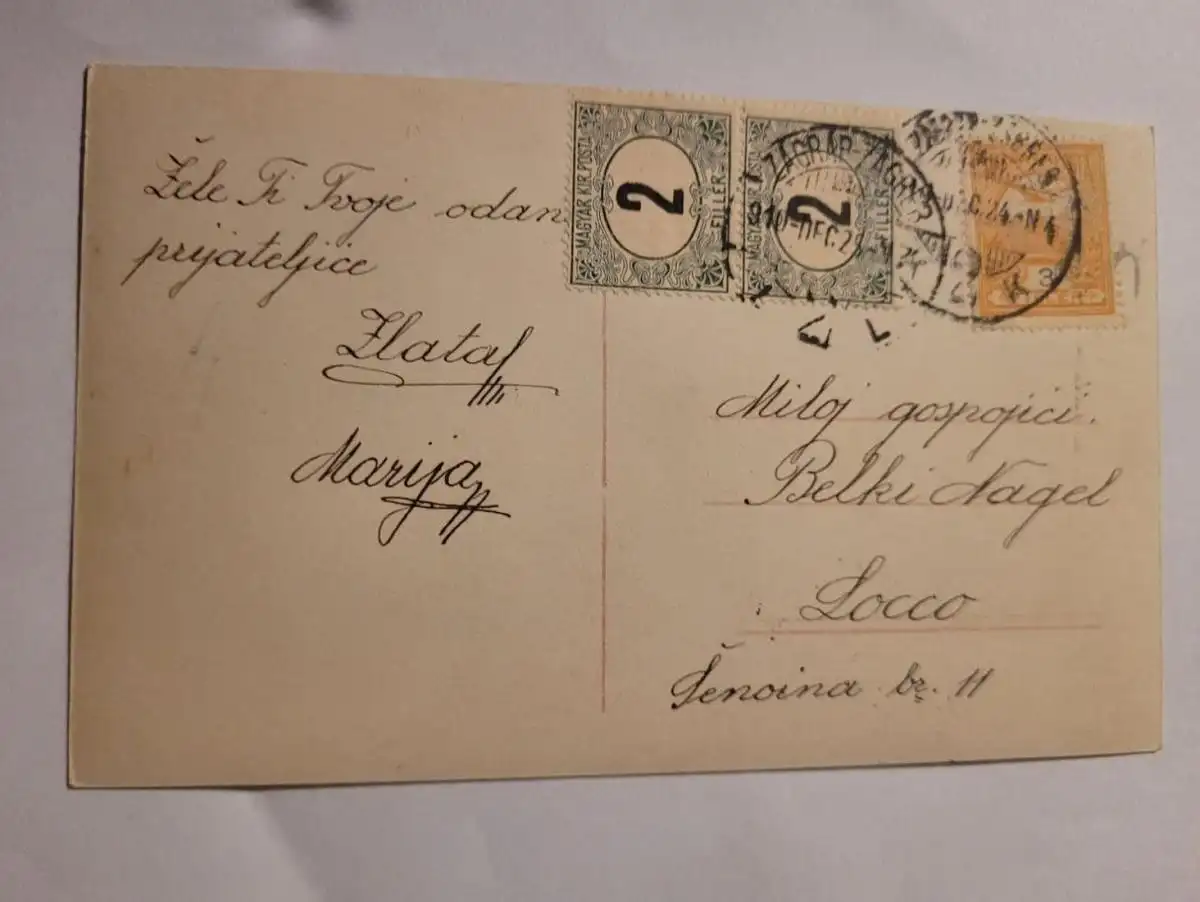 Žele Ti Tvoje odane
prijateljice
Zlata
Marija
MAGYAR KIR. POSTA
2
FILLÉR
MAGYAR KIR. POSTA
2
FILLÉR
ZÁGRÁB ZAGREB
910 DEC. 24
DEC. 24 N4
K
3
Miloj gospojici.
Belki Nagel
Locco
Šenoina br. 11